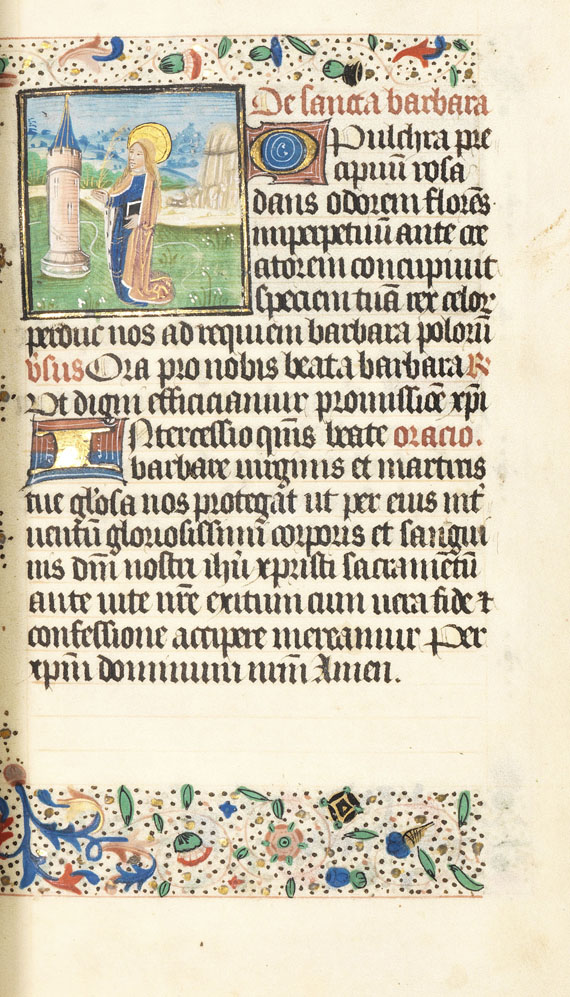 De sancta barbara
O Pulchra pre
cipuū rosa
dans odorem florēs
inperpetuū ante cre
atorem concupiuit
speciem tuā rex celoꝝ
perduc nos ad requiem barbara polorū
v̄sus Ora pro nobis beata barbara ℟
Vt digni efficiamur promissiōe xp̄i
INtercessio qm̄s beate oracio.
barbare uirginis et martiris
tue gl'osa nos protegat ut per eius int'
uentū gloriosissimi corporis et sangui
nis dm̄ nostri ihū xpristi sacramētū
ante uite nr̄e exitum cum uera fide ⁊
confessione accipere mereamur Per
xp̄m dominum nrm̄ Amen.